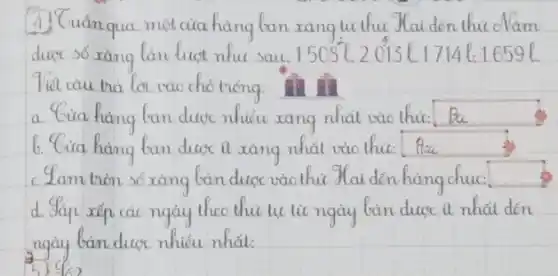 4) Tuần qua một cửa hàng bán xăng từ thứ Hai đến thứ Năm
được số xăng lần lượt như sau: 1505 l, 2 015 l, 1714 l; 1659 l.
Viết câu trả lời vào chỗ trống.
a. Cửa hàng bán được nhiều xăng nhất vào thứ: Ba
b. Cửa hàng bán được ít xăng nhất vào thứ:
c. Làm tròn số xăng bán được vào thứ Hai đến hàng chục:
d. Sắp xếp các ngày theo thứ tự từ ngày bán được ít nhất đến
ngày bán được nhiều nhất:
5)